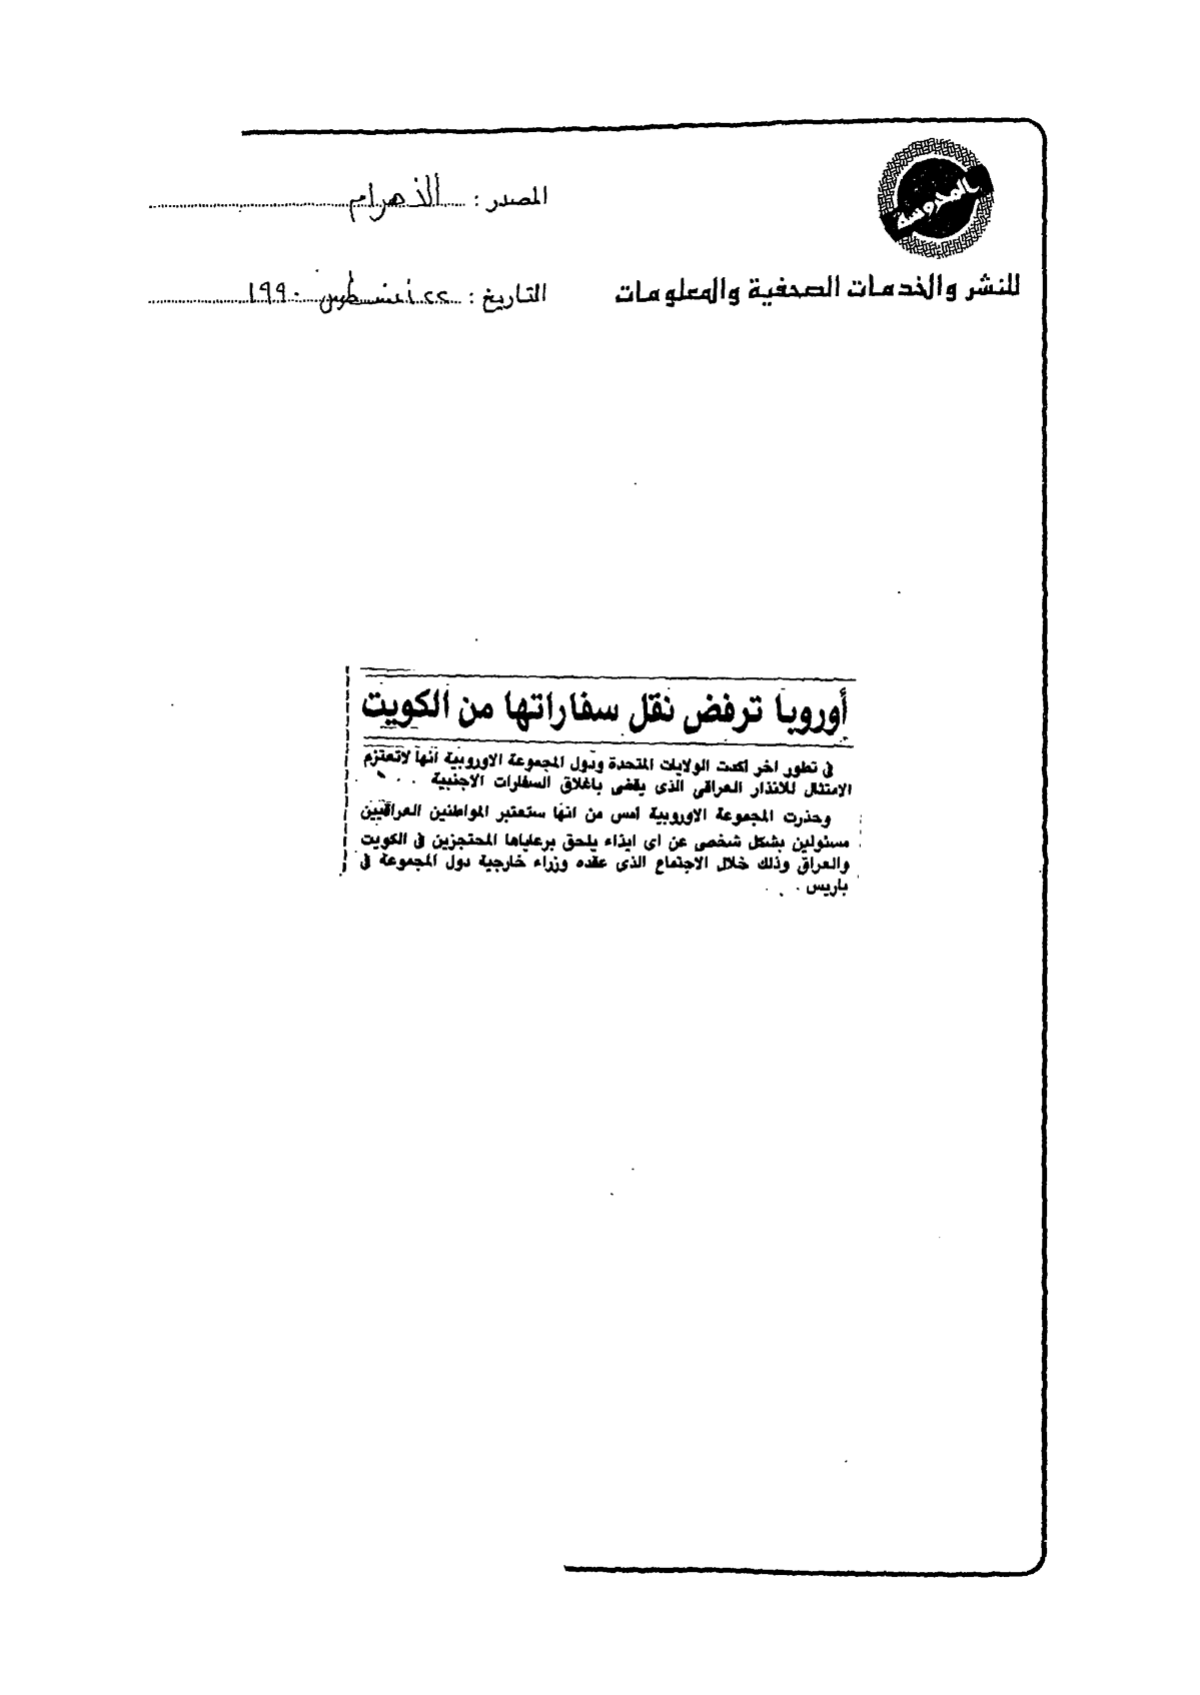 المحروسة
للنشر والخدمات الصحفية والمعلومات
المصدر : الأهرام
التاريخ : ٢٢ أغسطس ١٩٩٠
أوروبا ترفض نقل سفاراتها من الكويت
فى تطور اخر اكدت الولايات المتحدة ودول المجموعة الاوروبية انها لاتعتزم
الامتثال للانذار العراقى الذى يقضى باغلاق السفارات الاجنبية
وحذرت المجموعة الاوروبية امس من انها ستعتبر المواطنين العراقيين
مسئولين بشكل شخصى عن اى ايذاء يلحق برعاياها المحتجزين فى الكويت
والعراق وذلك خلال الاجتماع الذى عقده وزراء خارجية دول المجموعة فى
باريس .